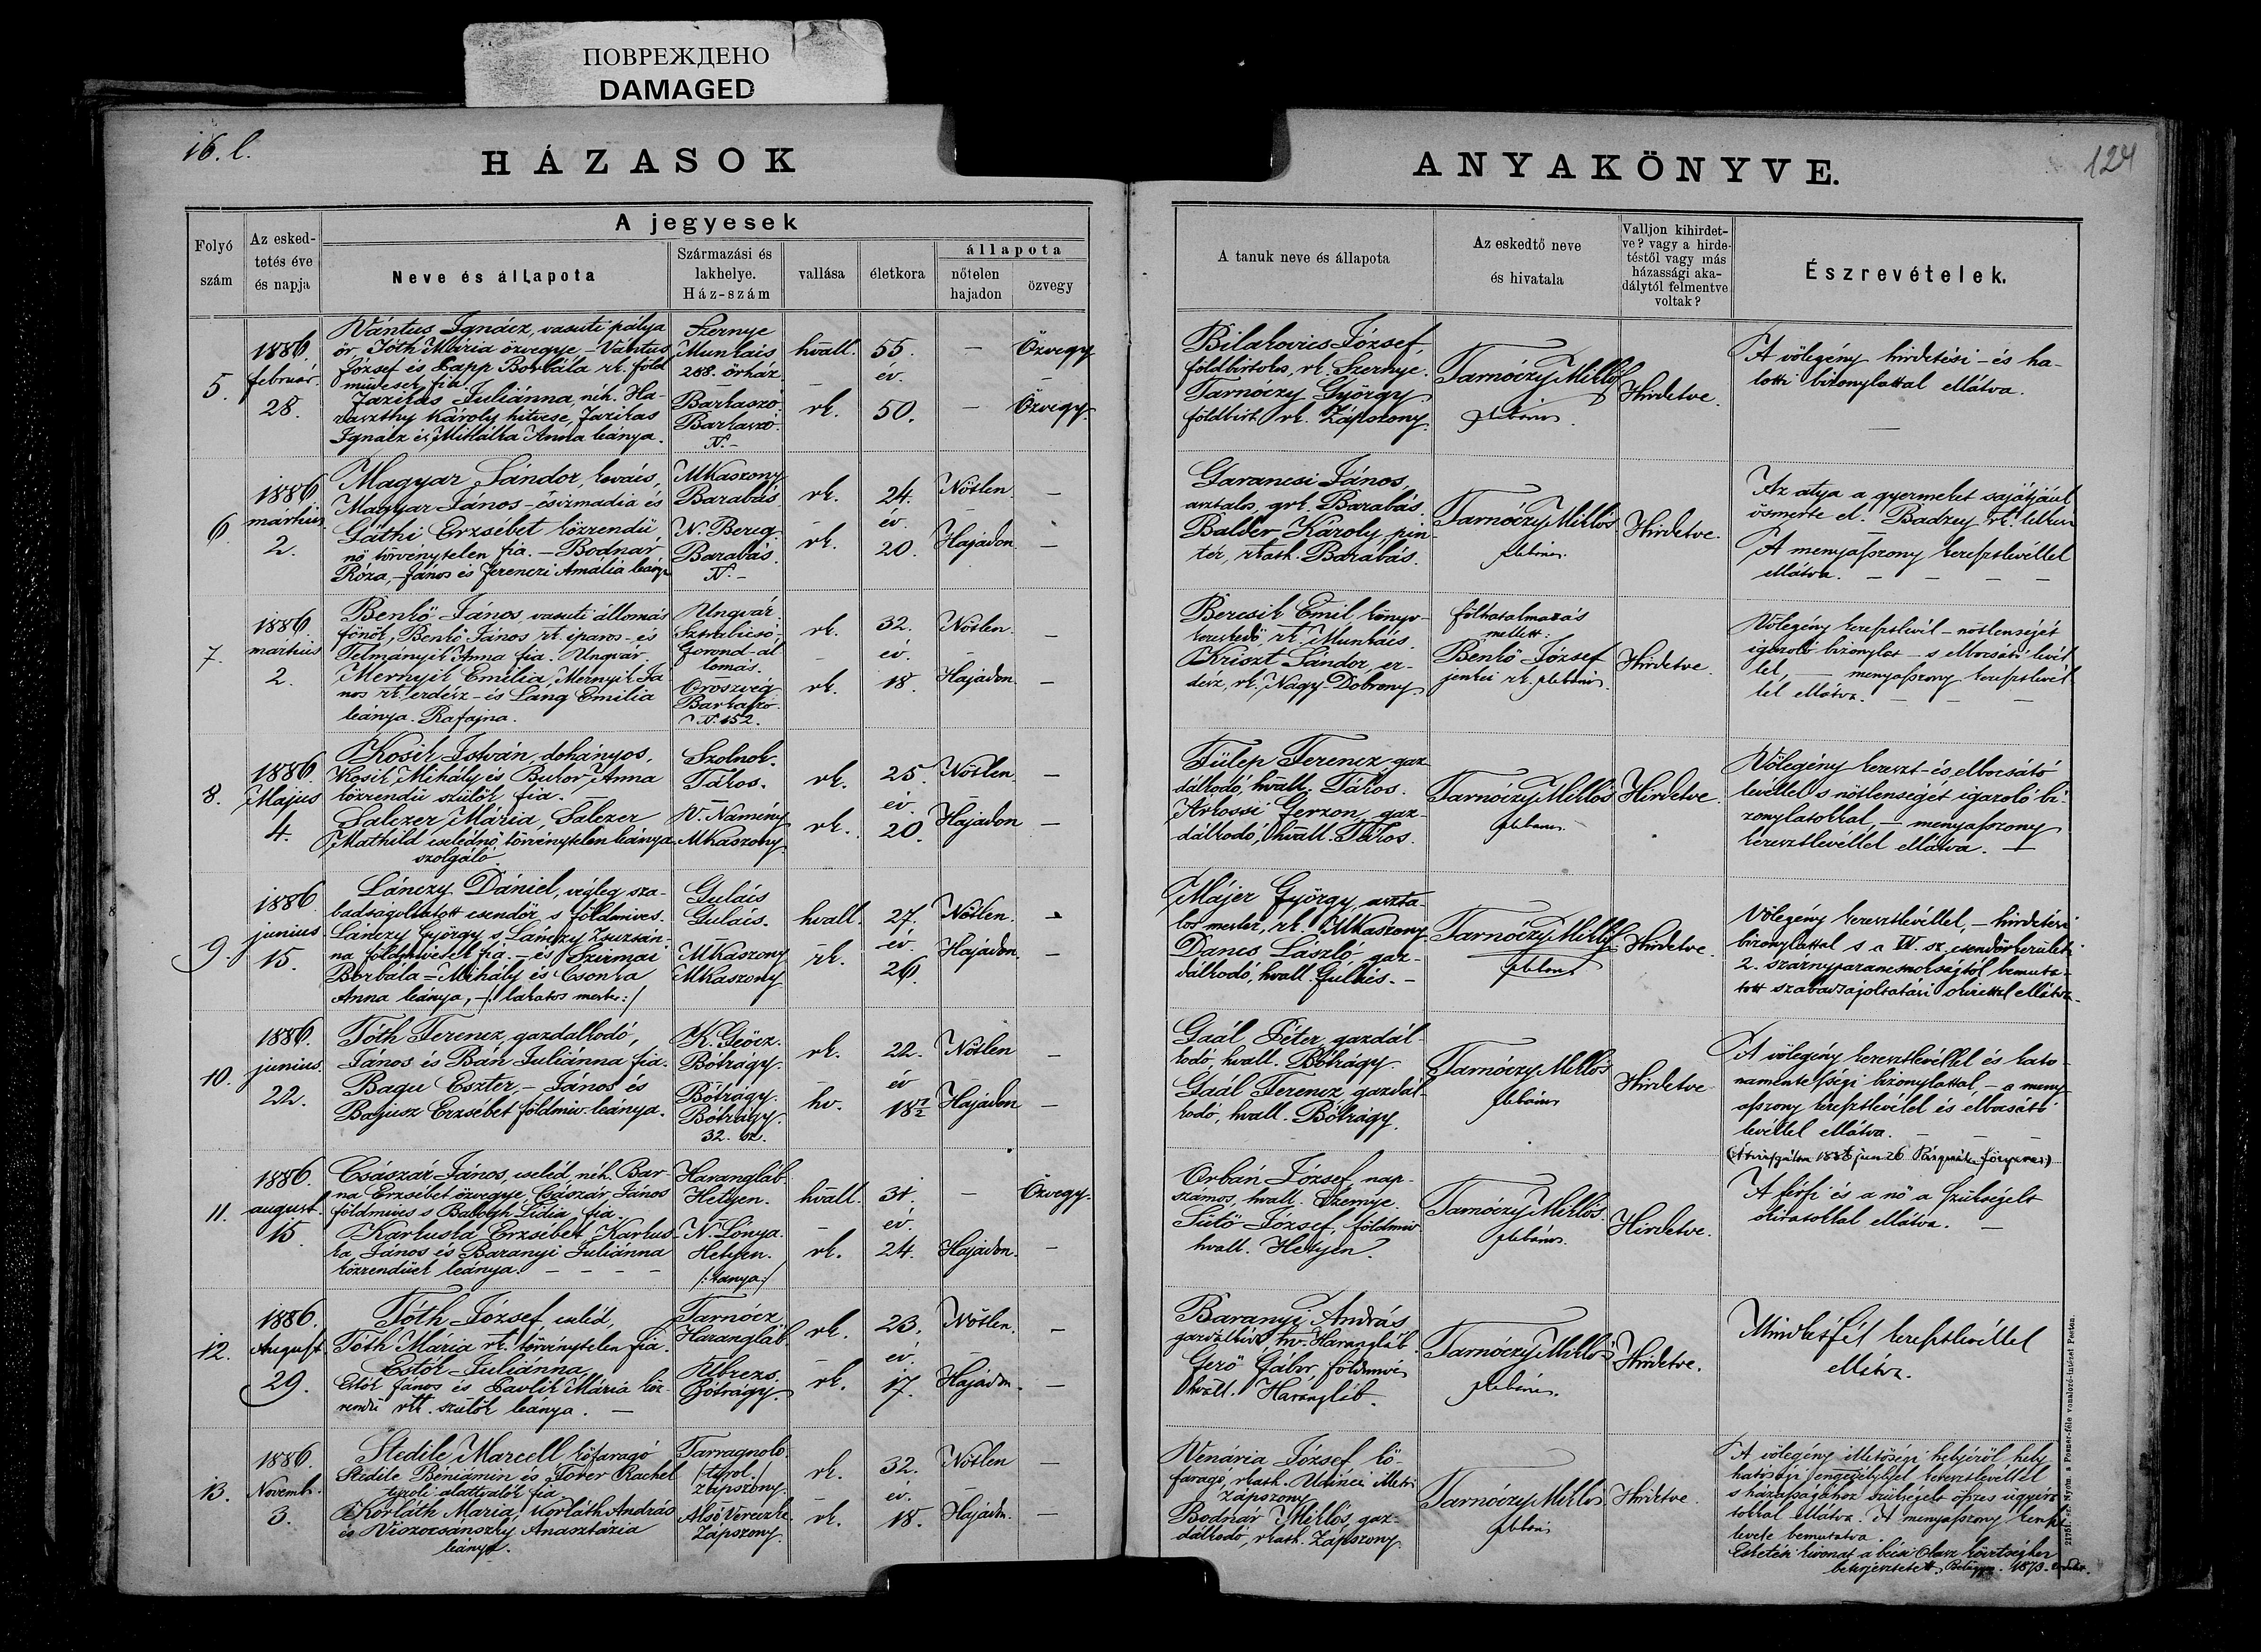 ПОВРЕЖДЕНО
DAMAGED
16. l.
HÁZASOK
ANYAKÖNYVE.
124
Folyó szám
Az esked-
tetés éve
és napja
A jegyesek
Neve és állapota
Származási és
lakhelye.
Ház-szám
vallása
életkora
állapota
nőtelen
hajadon
özvegy
A tanuk neve és állapota
Az eskedtő neve
és hivatala
Valljon kihirdet-
ve? vagy a hirde-
téstől vagy más
házassági aka-
dálytól felmentve
voltak?
Észrevételek.
5.
1886.
február
28.
Vántus Ignácz, vasuti pálya
őr Tóth Mária özvegye – Vántus
József és Papp Borbála rk. föld
mivesek fia.
Jazikas Juliánna, néh. Ha-
raszthy Károly hitvese, Jazikas
Ignácz és Mihálka Anna leánya.
Szernye
Munkács
288. őrház
Barkaszó
Barkaszó.
N. –
hvall.
rk.
55.
év.
50.
Özvegy
Özvegy.
Bilakovics József,
földbirtokos, rk. Szernye.
Tarnóczy György
földbirt. rk. Zápszony.
Tarnóczy Miklós
plebános.
Hirdetve.
A völegény hirdetési – és ha-
lotti bizonylattal ellátva.
6.
1886.
márthius
2.
Magyar Sándor, kovács,
Magyar János – csizmadia és
Gáthi Erzsébet közrendü
nő törvénytelen fia. – Bodnár
Róza, – János és Ferenczi Amália leánya
MKaszony
Barabás
N. Bereg.
Barabás.
N. –
rk.
rk.
24.
év.
20.
Nőtlen.
Hajadon
Garancsi János,
asztalos, gk. Barabás.
Balder Károly, pin-
tér, rkath. Barabás.
Tarnóczy Miklós
plebános.
Hirdetve.
Az atya a gyermeket sajátjául
ösmerte el. Badzey rk. lelkész
A menyaszony keresztlevéllel
ellátva.
7.
1886.
marthius
2.
Benkő János, vasuti állomás
főnök, Benkő János rk. iparos – és
Telmányik Anna fia. Ungvár.
Mernyik Emilia, Mernyik Já
nos rk. erdész – és Lang Emilia
leánya. Rafajna.
Ungvár
Sztrabicsó
Gorond-ál
lomás.
Oroszvég
Barkaszo
N. 152.
rk.
rk.
32.
év.
18.
Nőtlen.
Hajadon.
Bercsik Emil könyv-
kereskedő rk. Munkács.
Kriszt Sándor, er-
dész, rk. Nagy-Dobrony.
fölhatalmazás
mellett:
Benkő József
jenkei rk. plebános.
Hirdetve.
Völegény keresztlevél – nőtlenségét
igazoló bizonylat – s elbocsátó levél
lel, – menyaszony keresztlevél
lel ellátva.
8.
1886.
Május
4.
Kosik István, dohányos,
Kosik Mihály és Bukor Anna
közrendü szülők fia.
Salczer Mária, Salczer
Mathild cselédnő törvénytelen leánya
szolgáló.
Szolnok.
Tákos.
V. Namény
MKaszony.
rk.
rk.
25.
év
20.
Nőtlen
Hajadon
Fülep Ferencz gaz
dálkodó, hvall. Tákos.
Arkossi Gerzon, gaz-
dálkodó, hvall. Tákos.
Tarnóczy Miklós
plebános.
Hirdetve.
Völegény kereszt – és elbocsátó
levéllel s nőtlenségét igazoló bi-
zonylatokkal, – menyaszony
keresztlevéllel ellátva.
9.
1886
junius
15.
Lánczy Dániel, végleg sza-
badságoltatott csendőr, s földmives.
Lánczy György s Lánczy Zsuzsán-
na földmivesek fia. – és Szirmai
Borbála = Mihály és Csonka
Anna leánya, – /: lakatos mester :/
Gulács
Gulács.
MKaszony
MKaszony
hvall.
rk.
27.
év
26.
Nőtlen.
Hajadon
Májer György, aszta-
los mester, rk. MKaszony
Dancs László, gaz-
dálkodó, hvall. Gulács.
Tarnóczy Miklós
plebános
Hirdetve.
Völegény keresztlevéllel, – hirdetési
bizonylattal s a VI. sz. csendőrkerületi
2. szárnyparancsnokságtól bemuta-
tott szabadságoltatási okirattal ellátva.
10.
1886.
junius
22.
Tóth Ferencz, gazdalkodó,
János és Bán Juliánna fia.
Bagu Eszter, – János és
Bagusz Erzsébet földmiv. leánya.
K. Geőcz.
Bótrágy.
Bótrágy.
Bótrágy.
32. sz.
rk.
hv.
22.
év
18½
Nőtlen
Hajadon
Gaál Péter, gazdál-
kodó, hvall. Bótrágy.
Gaál Ferencz, gazdál-
kodó, hvall. Bótrágy.
Tarnóczy Miklós
plebános
Hirdetve
A völegény keresztlevéllel és kato-
namentességi bizonylattal, – a meny
aszony keresztlevéllel és elbocsátó
levéllel ellátva.
11.
1886.
august.
15
Császár János, cseléd, néh. Bar-
na Erzsébet özvegye, Császár János
földmives s Balogh Lidia fia.
Karkuska Erzsébet, Karkus-
ka János és Baranyi Juliánna
közrendüek leánya.
Harangláb
Hetyen.
N. Lónya.
Hetyen.
/: tanya :/
hvall.
rk.
31.
év.
24.
Özvegy.
Hajadon.
Orbán József, nap-
számos, hvall. Szernye.
Sütő József, földmiv
hvall. Hetyen.
Tarnóczy Miklós.
plebános.
Hirdetve.
A férfi és a nő a szükséges
okiratokkal ellátva.
12.
1886.
August.
29.
Tóth József, cseléd,
Tóth Mária rk. törvénytelen fia.
Estók Juliánna,
Estók János és Pavlik Mária köz-
rendü rk. szülők leánya.
Tarnócz
Harangláb.
Bótrágy.
rk.
rk.
23.
év.
17.
Nőtlen.
Hajadon.
Baranyi András,
gazdálkodó, hv. Harangláb.
Gerő Gábor, földmivés
hvall. Harangláb.
Tarnóczy Miklós
plebános.
Hirdetve.
Mindkétfél keresztlevéllel
ellátva.
13.
1886.
Novemb.
3.
Stedile Marcell kőfaragó
Stedile Béniámin és Tover Rachel
tyroli alattvalók fia.
Korláth Mária, Korláth András
és Viszocsanszky Anasztázia
leánya.
Tarragnolo.
/: tyrol. :/
Zápszony.
Alsó Vereczke
Zápszony.
rk.
rk.
32.
év.
18.
Nőtlen
Hajadon.
Venária József kő-
faragó, rkath. Udinei illető
Zápszony.
Bodnár Miklós, gaz-
dálkodó, rkath. Zápszony.
Tarnóczy Miklós
plebános
Hirdetve.
A völegény illetőségi helyéről hely
hatósági engedélylyel keresztlevéllel
s házasságához szükséges összes ügyira
tokkal ellátva. A menyaszony kereszt
levele bemutatva.
Esketési kivonat a bécsi Olasz követséghez
beterjesztetett.
21751. sz. Nyom. a Posner-féle vonalozó-intézet Pesten.